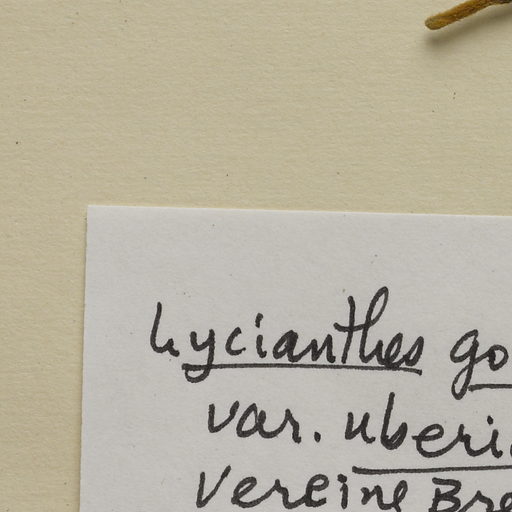 Lycianthes go
var. uberi
Vereine Bre